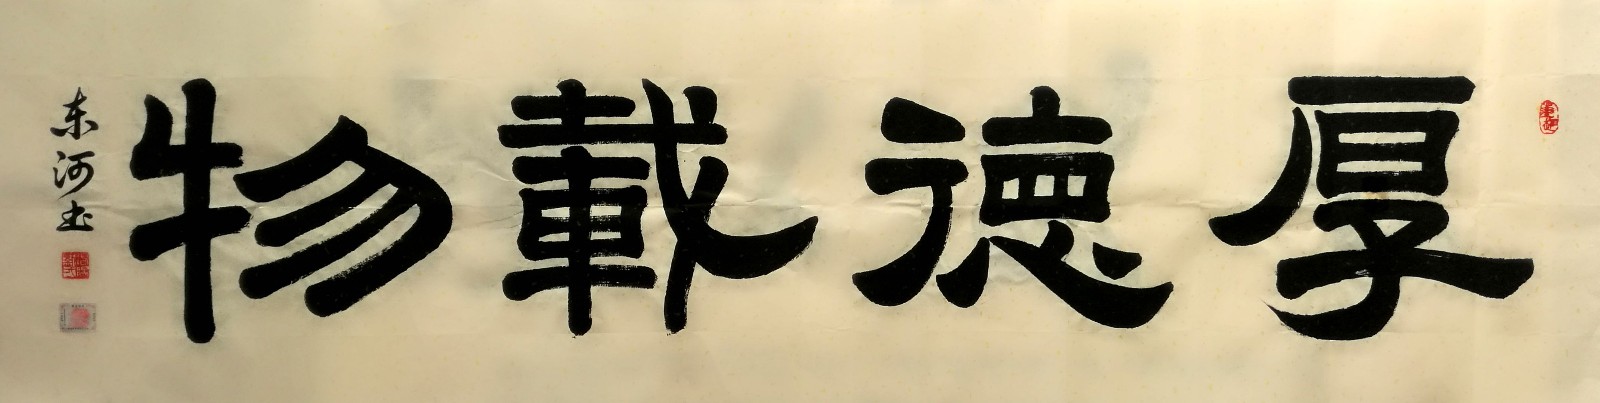 厚德載物
东河书